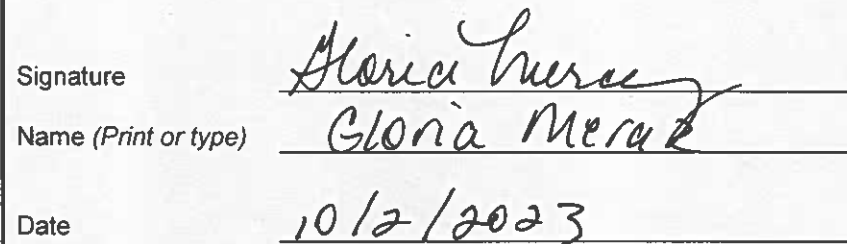 Signature Gloria Merak
Name (Print or type) Gloria Merak
Date 10/2/2023